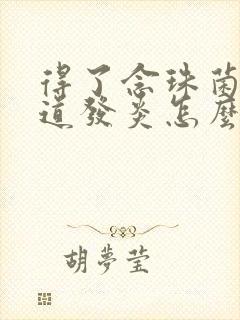 得了念珠菌
道發炎怎麼
胡夢瑩